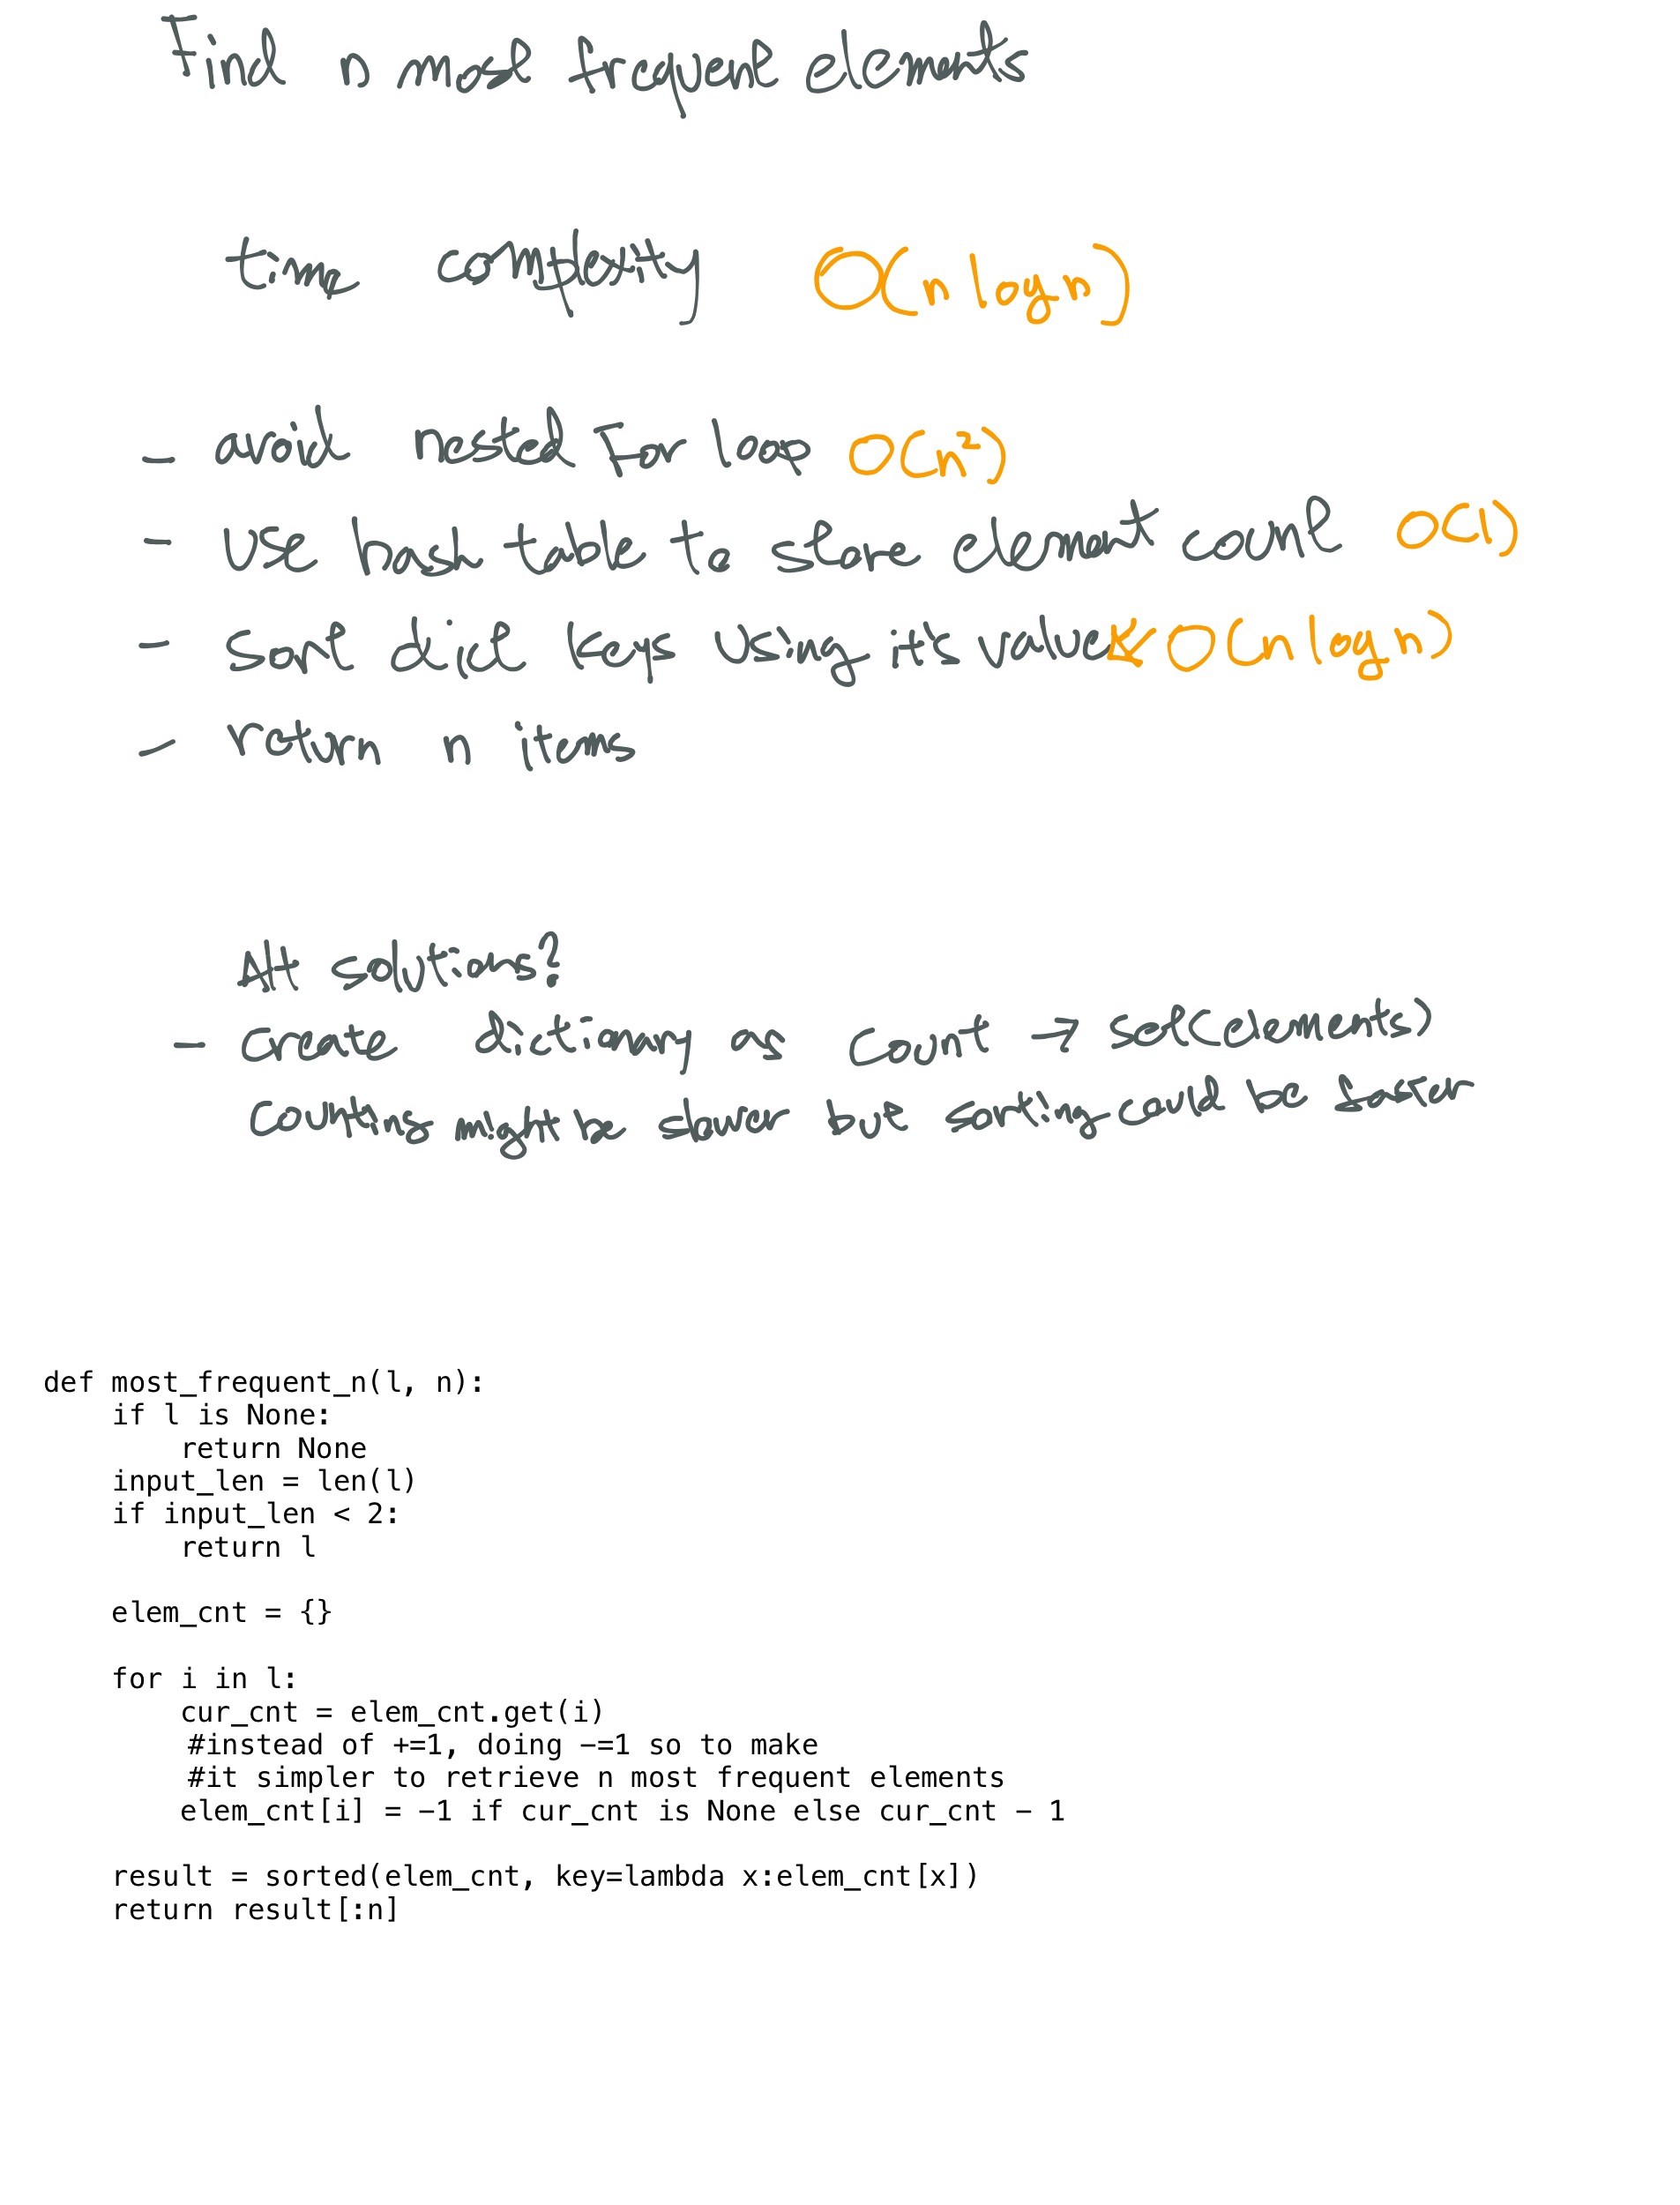 Find n most frequent elements
time complexity O(n log n)
- avoid nested For loop O(n²)
- use hash table to store element count O(1)
- sort dict keys using it's value ← O(n log n)
- return n items
Alt solutions?
- create dictionary as count → set(elements)
counting might be slower but sorting could be faster
def most_frequent_n(l, n):
    if l is None:
        return None
    input_len = len(l)
    if input_len < 2:
        return l
    elem_cnt = {}
    for i in l:
        cur_cnt = elem_cnt.get(i)
        #instead of +=1, doing -=1 so to make
        #it simpler to retrieve n most frequent elements
        elem_cnt[i] = -1 if cur_cnt is None else cur_cnt - 1
    result = sorted(elem_cnt, key=lambda x:elem_cnt[x])
    return result[:n]